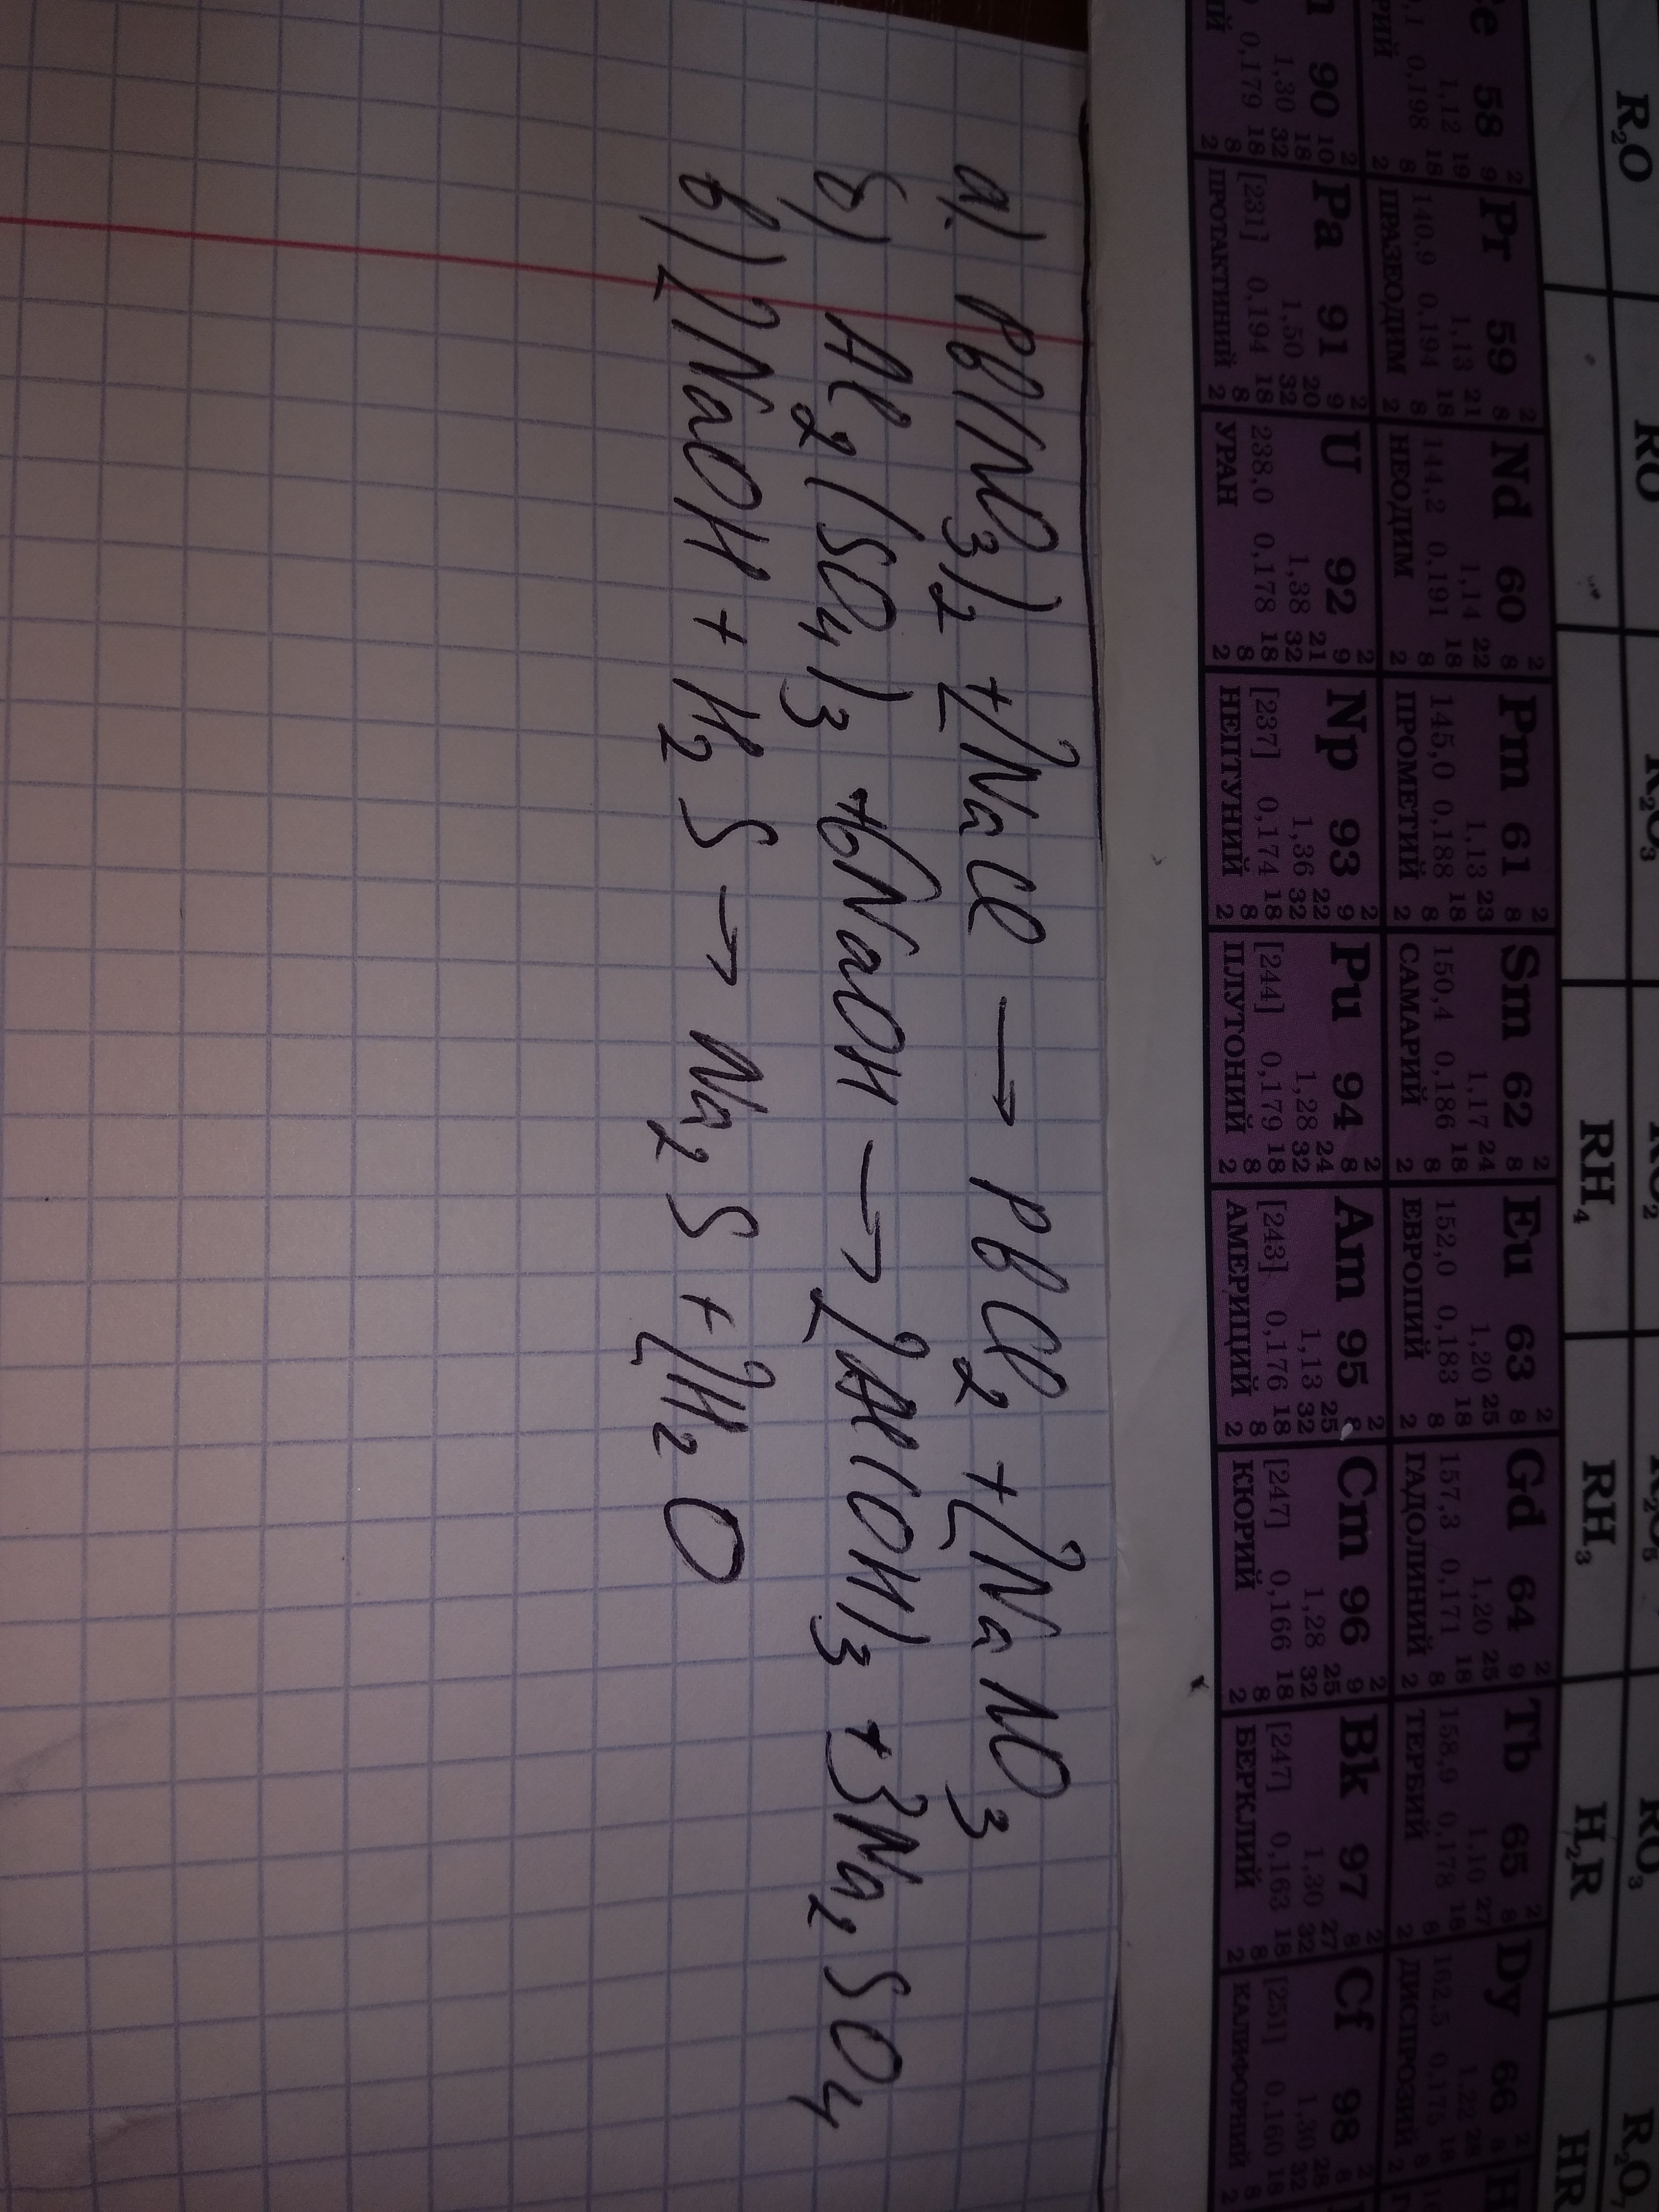 R₂O RO R₂O₃ RO₃
RH₄ RH₃ H₂R HR
58 Pr 59 Nd 60 Pm 61 Sm 62 Eu 63 Gd 64 Tb 65 Dy 66
1,12 1,13 1,14 1,13 1,17 1,20 1,20 1,10 1,22
0,198 140,9 0,194 144,2 0,191 145,0 0,188 150,4 0,186 152,0 0,183 157,3 0,171 158,9 0,178 162,5 0,175
РИЙ ПРАЗЕОДИМ НЕОДИМ ПРОМЕТИЙ САМАРИЙ ЕВРОПИЙ ГАДОЛИНИЙ ТЕРБИЙ ДИСПРОЗИЙ
90 Pa 91 U 92 Np 93 Pu 94 Am 95 Cm 96 Bk 97 Cf 98
1,30 1,50 1,38 1,36 1,28 1,13 1,28 1,30 1,30
0,179 [231] 0,194 238,0 0,178 [237] 0,174 [244] 0,179 [243] 0,176 [247] 0,166 [247] 0,163 [251] 0,160
ИЙ ПРОТАКТИНИЙ УРАН НЕПТУНИЙ ПЛУТОНИЙ АМЕРИЦИЙ КЮРИЙ БЕРКЛИЙ КАЛИФОРНИЙ
а) Pb(NO₃)₂ + 2NaCl → PbCl₂ + 2NaNO₃
б) Al₂(SO₄)₃ + 6NaOH → 2Al(OH)₃ + 3Na₂SO₄
в) 2NaOH + H₂S → Na₂S + 2H₂O